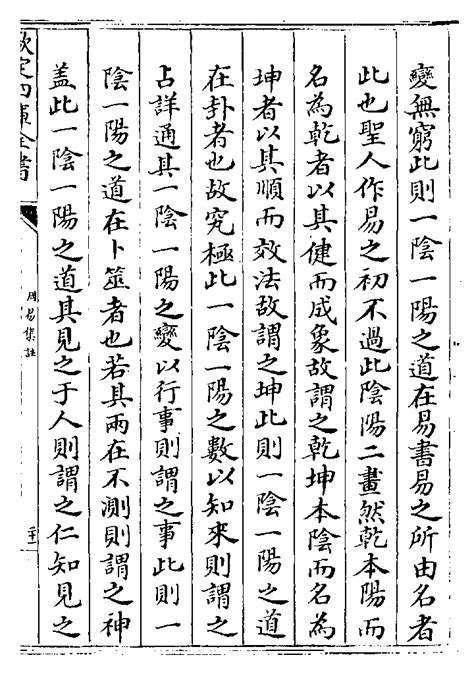 變無窮此則一陰一陽之道在易書易之所由名者
此也聖人作易之初不過此陰陽二畫然乾本陽而
名為乾者以其健而成象故謂之乾坤本陰而名為
坤者以其順而效法故謂之坤此則一陰一陽之道
在卦者也故究極此一陰一陽之數以知來則謂之
占詳通其一陰一陽之變以行事則謂之事此則一
陰一陽之道在卜筮者也若其兩在不測則謂之神
蓋此一陰一陽之道其見之于人則謂之仁知見之
欽定四庫全書
周易集註